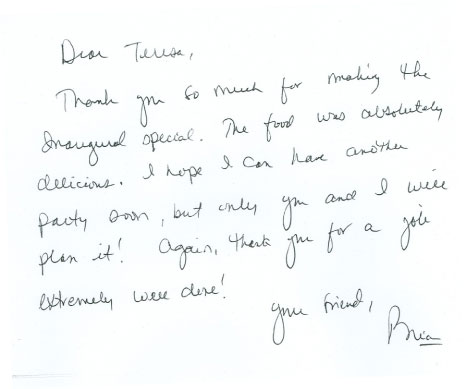 Dear Teresa,
Thank you so much for making the
Inaugural special. The food was absolutely
delicious. I hope I can have another
party soon, but only you and I will
plan it! Again, thank you for a job
extremely well done!
Your friend,
Brian